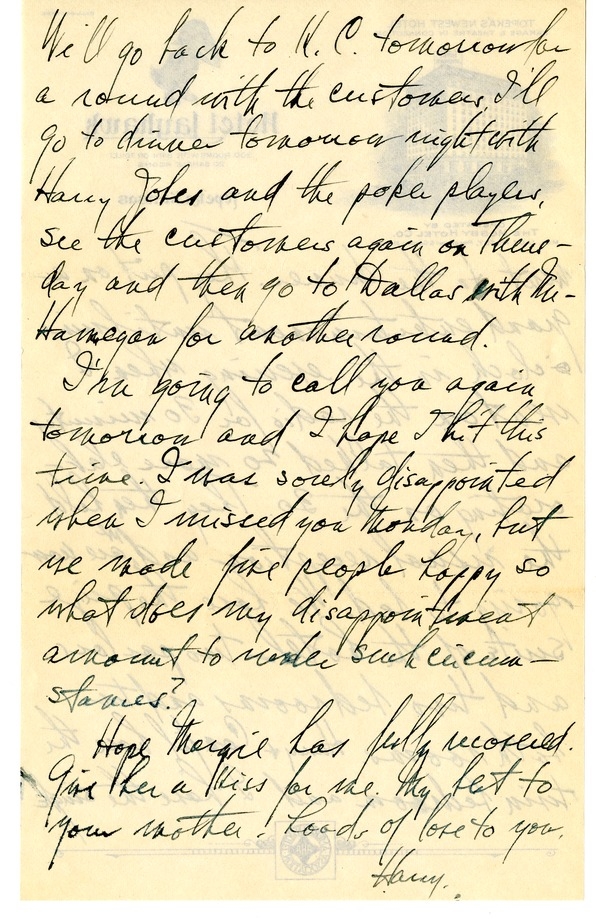 We'll go back to K. C. tomorrow for
a round with the customers, I'll
go to dinner tomorrow night with
Harry Jobes and the poker players,
see the customers again on Thurs-
day and then go to Dallas with Mr-
Hannegan for another round.
I'm going to call you again
tomorrow and I hope I hit this
time. I was sorely disappointed
when I missed you Monday, but
we made five people happy so
what does my disappointment
amount to under such circum-
stances?
Hope Margie has fully recovered.
Give her a kiss for me. My best to
your mother. Loads of love to you.
Harry.